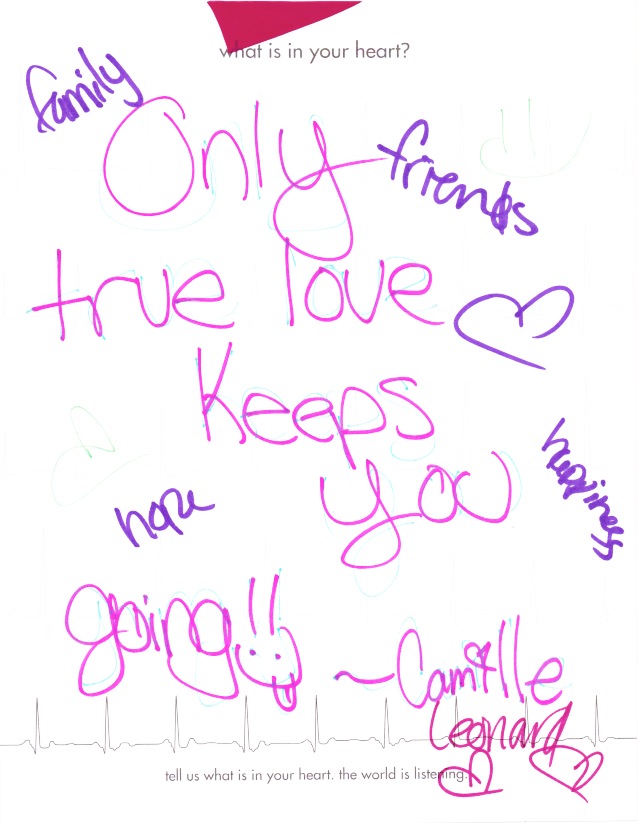 what is in your heart?
family
Only
friends
true love
Keeps
you
happiness
hope
going!!
~Camille
Leonard
tell us what is in your heart. the world is listening.